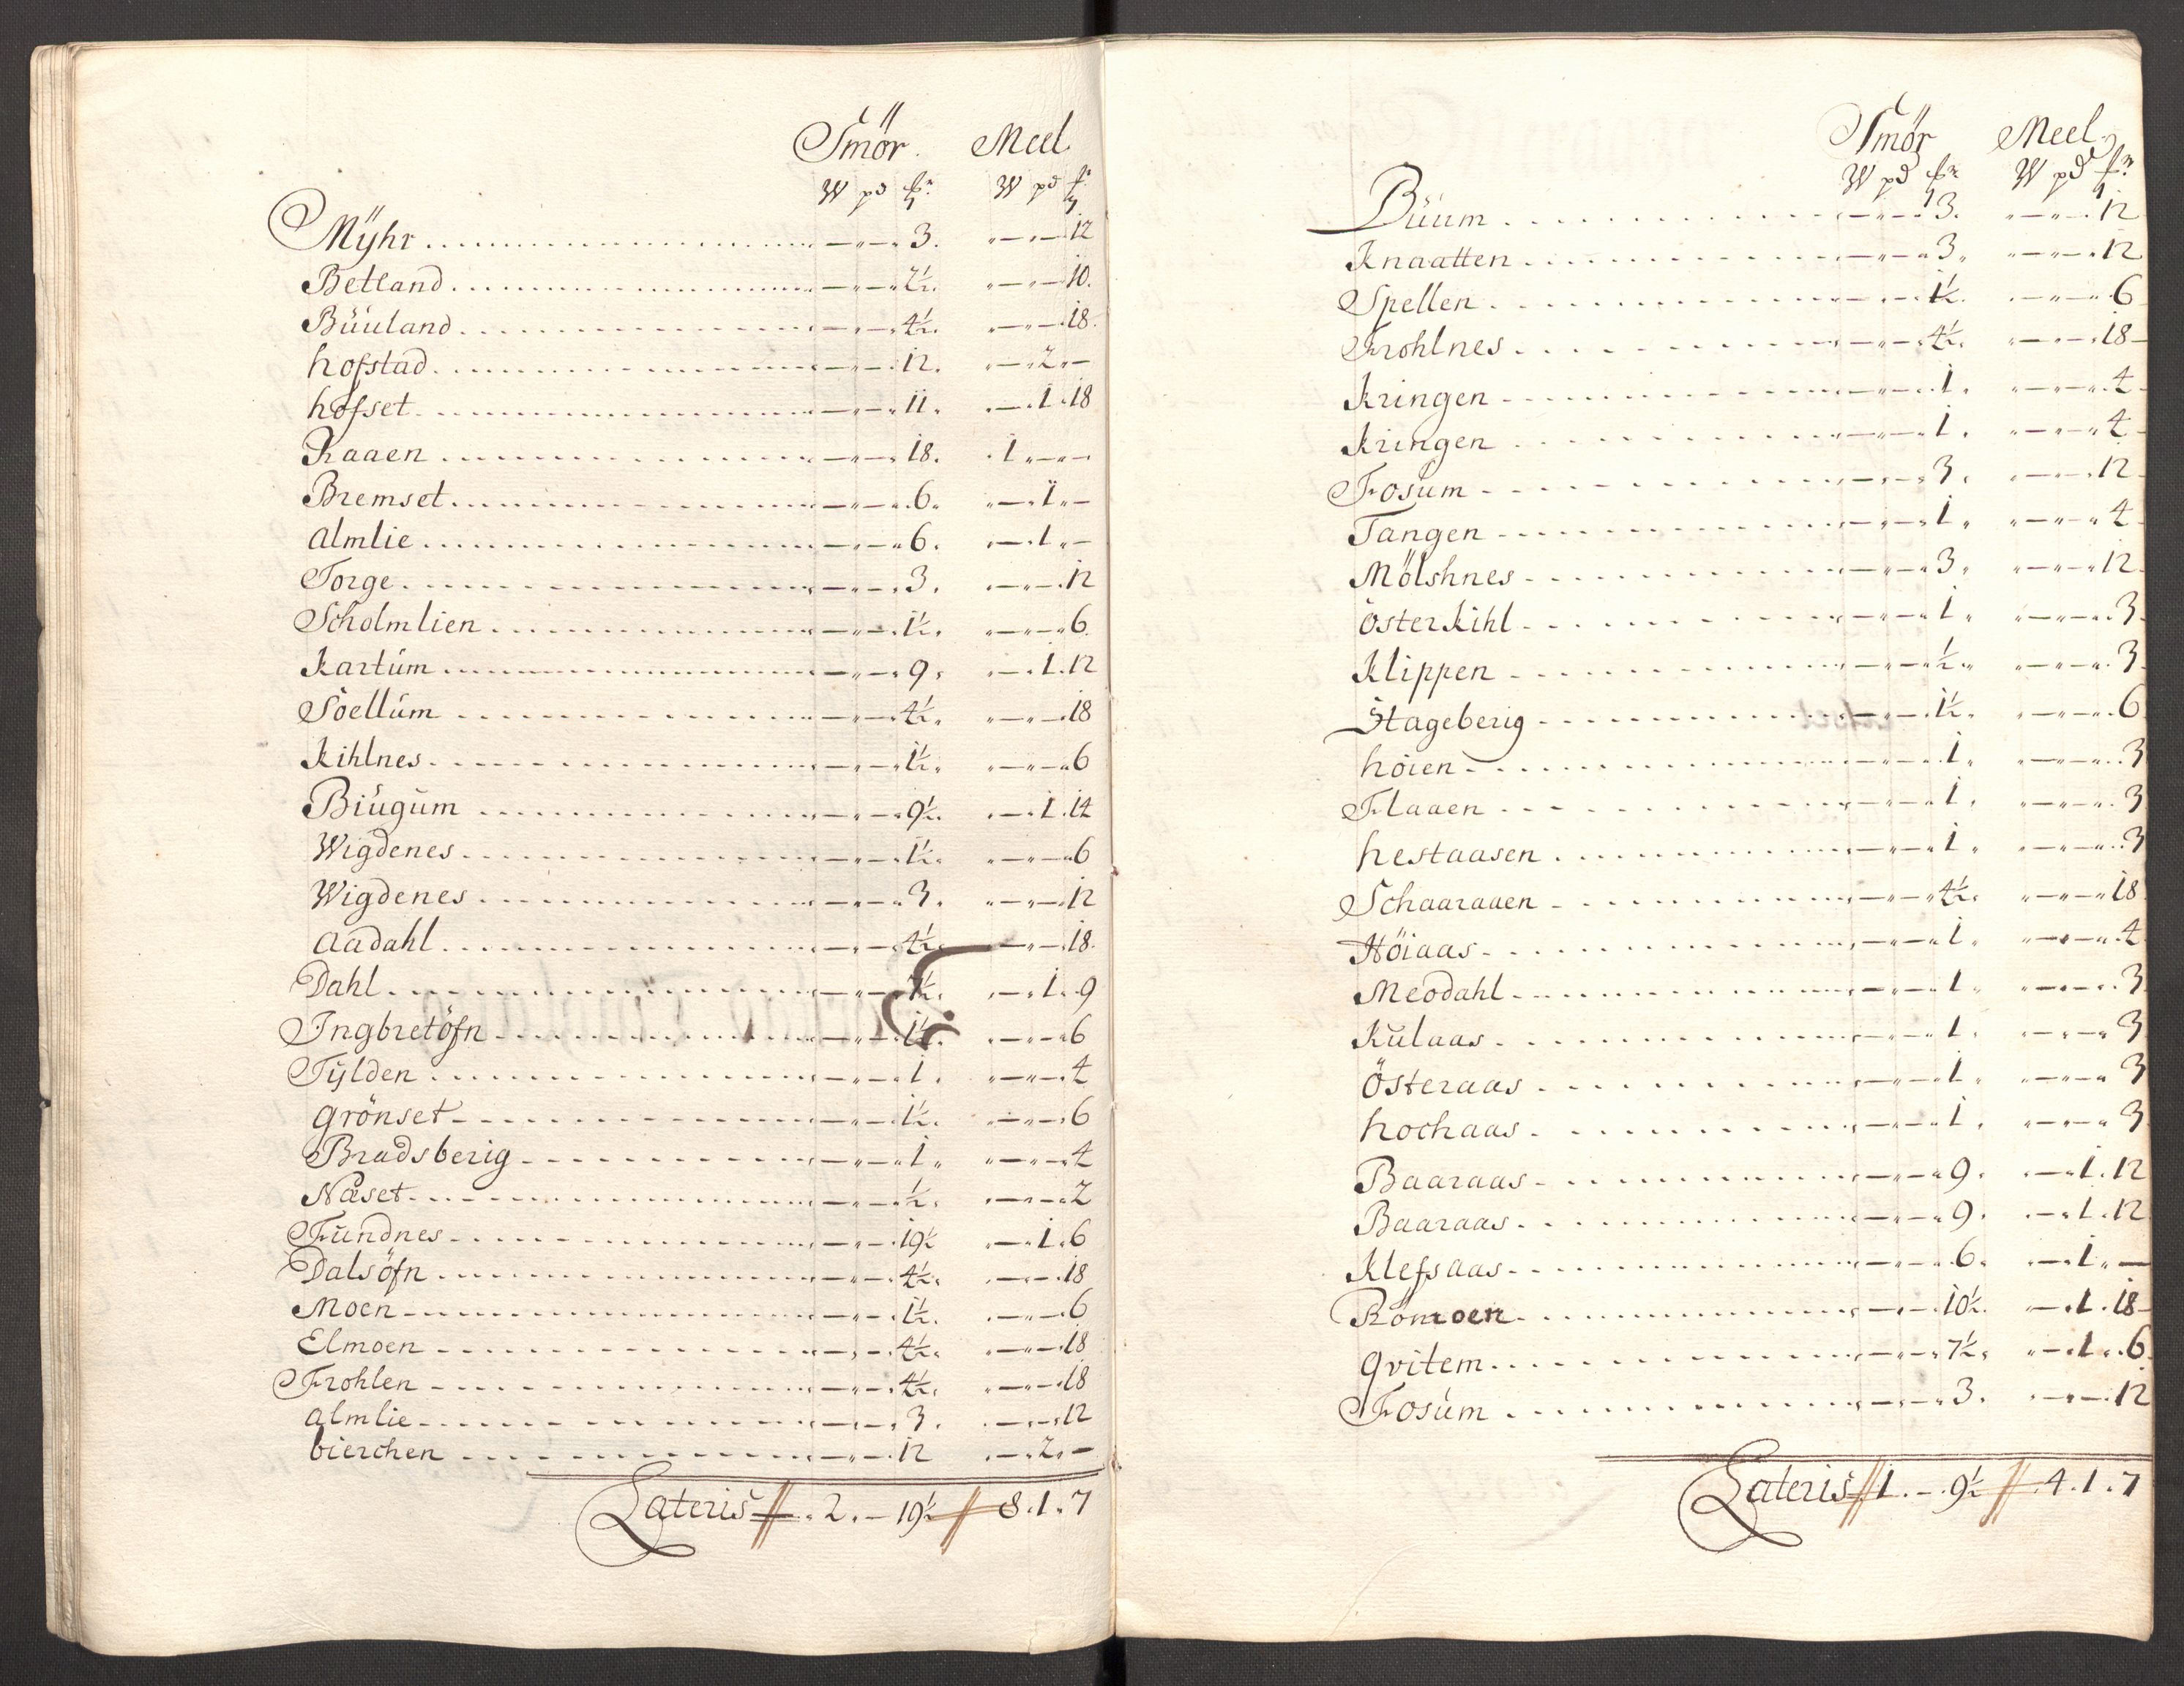 Smör. Meel
W pd ℔r W pd ℔r
Mÿhr - " - " 3. " - " - 12
Betland - " - " 2½. " - " - 10.
Büuland - " - " 4½. " - " - 18.
hofstad - " - " 12. " - " 2 " -
hofset - " - " 11. " - . 1 . 18
Raaen - " - " 18. . 1 " - " -
Bremset - " - " 6. " - " 1 " -
almlie - " - " 6. " - . 1 " -
Torge - " - " 3. " - " - 12
Scholmlien - " - " 1½. " - " - " 6.
Kartum - " - " 9. " - . 1 . 12
Soellum - " - " 4½. " - " - 18
Kihlnes - " - " 1½. " - " - " 6
Biugum - " - " 9½. " - . 1 . 14
Wigdenes - " - " 1½. " - " - " 6
Wigdenes - " - " 3. " - " - 12
aadahl - " - " 4½. - " - 18.
Dahl - " - " 7½. " - . 1 . 9
Ingbretöfn - " - " 1½. " - " - " 6
Tÿlden - " - " 1. " - " - " 4
grönset - " - " 1½. " - " - " 6
Bradsberig - " - " 1. " - " - " 4
Næset - " - " ½. " - " - " 2
Fundnes - " - " 19½ " - . 1 . 6
Dalsöfn - " - " 4½. " - " - 18
Moen - " - " 1½. " - " - 6
Elmoen - " - " 4½. " - " - 18
Frohlen - " - " 4½. " - " - 18
almlie - " - " 3. " - " - 12
bierchen - " - " 12 " - " 2 " -
Lateris . 2 . - 19½ 8 . 1 . 7
Smör Meel
W pd ℔r W pd ℔r
Buum - " - " 3. " - " - 12
Knaatten - " - " 3. " - " - 12
Spellen - " - " 1½. " - " - " 6
Frohlnes - " - " 4½. " - " - 18
Kringen - " - " 1. " - " - " 4
Kringen - " - " 1. " - " - " 4
Fosum - " - " 3. " - " - 12
Tangen - " - " 1. " - " - " 4
Mölshnes - " - " 3. " - " - 12
österkihl - " - " 1. " - " - " 3
Klippen - " - " ½. " - " - " 3
Stageberig - " - " 1½. " - " - " 6
höien - " - " 1. " - " - " 3
Flaaen - " - " 1. " - " - " 3
hestaasen - " - " 1. " - " - " 3
Schaaraaen - " - " 4½. " - " - 18
Höiaas - " - " 1. " - " - " 4
Meodahl - " - " 1. " - " - " 3
Kulaas - " - " 1. " - " - " 3
Österaas - " - " 1. " - " - " 3
hochaas - " - " 1. " - " - " 3
Baaraas - " - " 9. " - . 1 . 12
Baaraas - " - " 9. " - . 1 . 12
Klefsaas - " - " 6. " - . 1 " -
Römoen - " - " 10½. " - . 1 . 18
qvitem - " - " 7½. " - . 1 . 6
Fosum - " - " 3. " - " - 12
Lateris 1 . - . 9½ 4 . 1 . 7